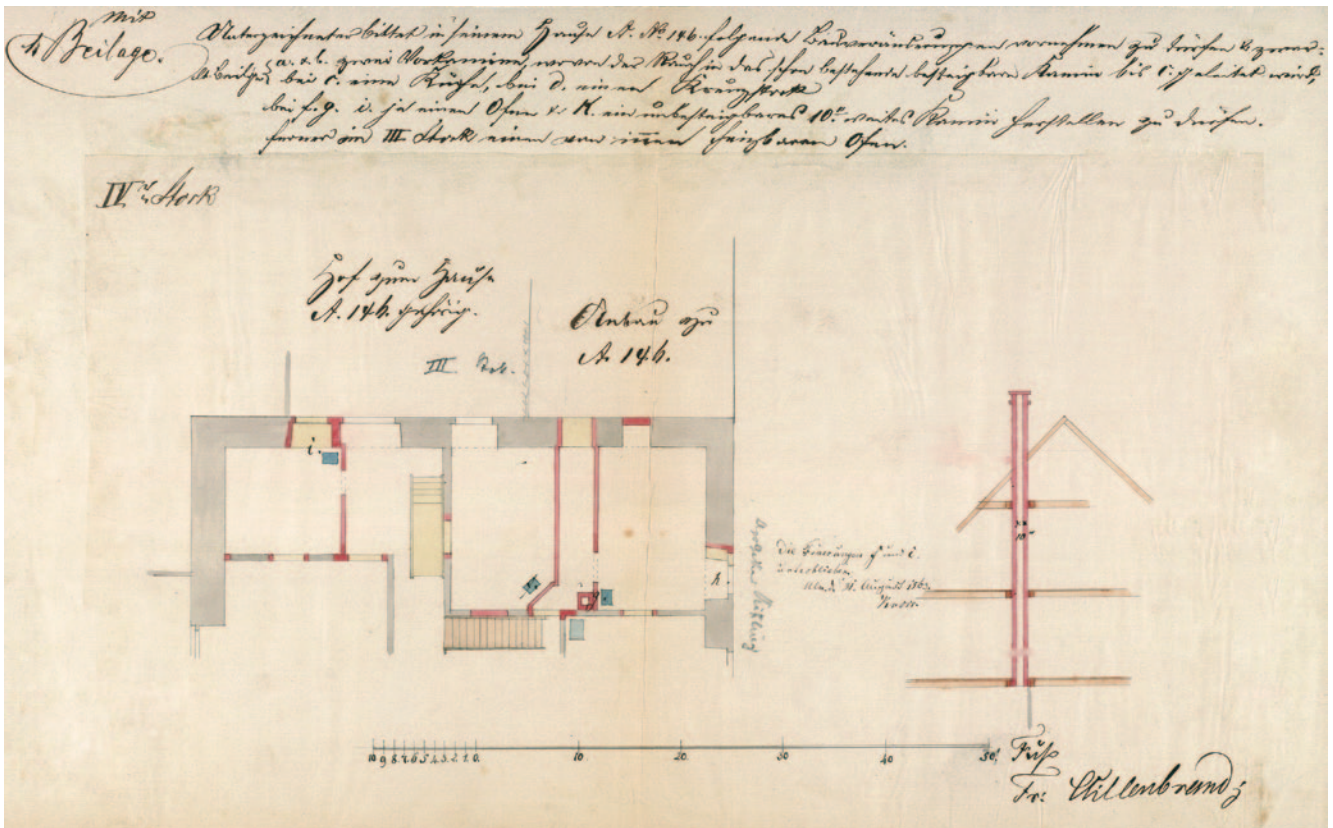 mit
Beilage.
Unterzeichneter bittet in seinem Hause A. No 146. folgende Bauveränderungen vornehmen zu dürfen & zwar:
a. & b. zwei Vorkamine, wovon der Rauch in das schon bestehende besteigbare Kamin bis C. geleitet wird,
bei c. eine Küche, bei d. einen Kreuzstock
bei f. g. i. je einen Ofen & K. ein unbesteigbares 10" weites Kamin herstellen zu dürfen.
ferner im III Stock einen von innen heizbaren Ofen.
IVter Stock
Hof zum Hause
A. 146. gehörig.
Anbau zu
A. 146.
III. Stok.
i.
g.
h.
Apotheker
Die Feuerungen f und i.
unterblieben
August 1863.
10"
10 9 8 7 6 5 4 3 2 1 0. 10 20 30 40 50'. Fuß
Fr: Willenbrand